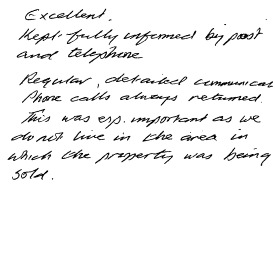 Excellent.
Kept fully informed by post
and telephone
Regular, detailed communicat
Phone calls always returned.
This was esp. important as we
do not live in the area in
which the property was being
sold.